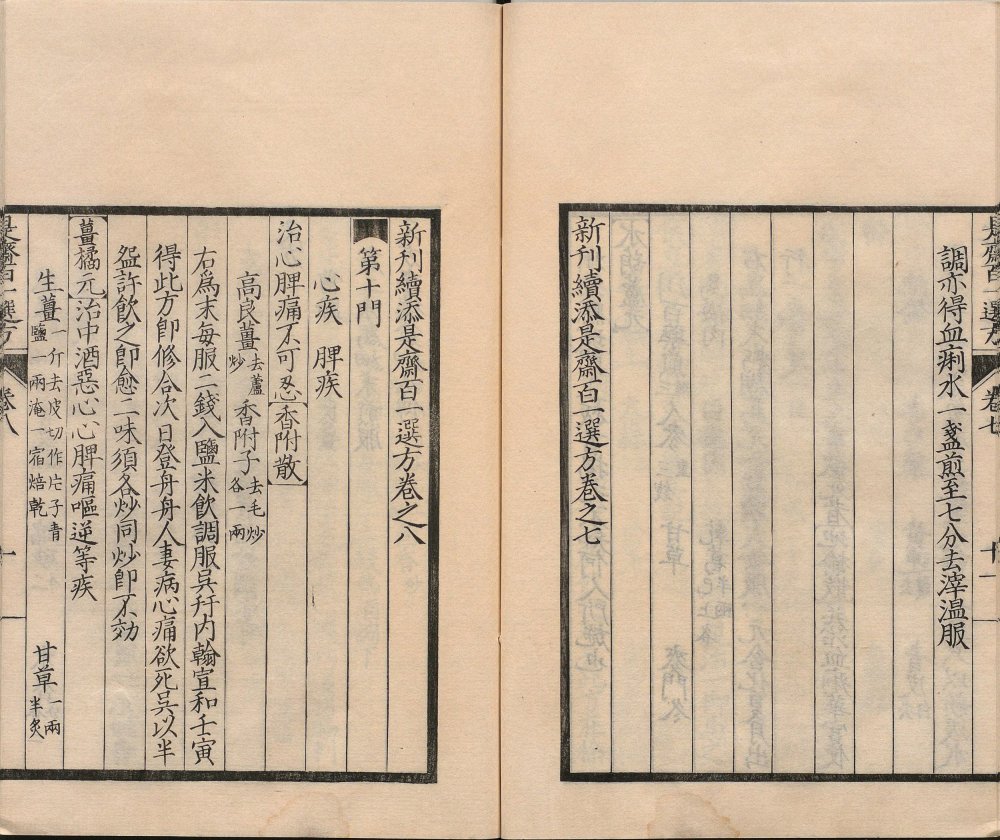 調亦得血痢水一盞煎至七分去滓温服
新刊續添是齋百一選方卷之七
新刊續添是齋百一選方卷之八
第十門
心疾 脾疾
治心脾痛不可忍香附散
高良薑去蘆炒 香附子去毛炒各一兩
右爲末每服二錢入鹽米飲調服吳幵内翰宣和壬寅
得此方卽修合次日登舟舟人妻病心痛欲死吳以半
盌許飲之卽愈二味須各炒同炒卽不効
薑橘元治中酒惡心心脾痛嘔逆等疾
生薑一斤去皮切作片子青鹽一兩淹一宿焙乾 甘草一兩半炙
是齋百一選方 卷八